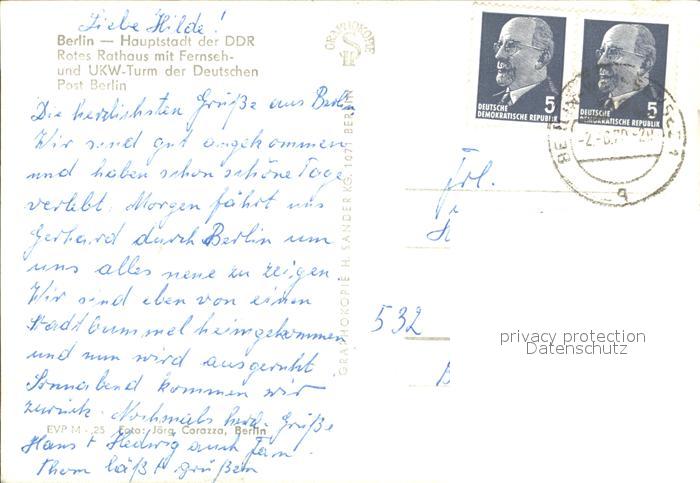 Liebe Hilde!
Berlin — Hauptstadt der DDR
Rotes Rathaus mit Fernseh-
und UKW-Turm der Deutschen
Post Berlin
Die herzlichsten Grüße aus Berlin
Wir sind gut angekommen
und haben schon schöne Tage
verlebt. Morgen fährt uns
Gerhard durch Berlin um
uns alles neue zu zeigen.
Wir sind eben von einen
Stadtbummel heimgekommen
und nun wird ausgeruht.
Sonnabend kommen wir
zurück. Nochmals herzl. Grüße
EVP M -,25 Foto: Jörg Corazza, Berlin
Hans + Hedwig auch Fam.
Thom läßt grüßen
GRAPHOKOPIE
GRAPHOKOPIE H. SANDER KG, 1071 BERLIN
5
DEUTSCHE
DEMOKRATISCHE REPUBLIK
5
DEUTSCHE
DEMOKRATISCHE REPUBLIK
Frl.
532
privacy protection
Datenschutz